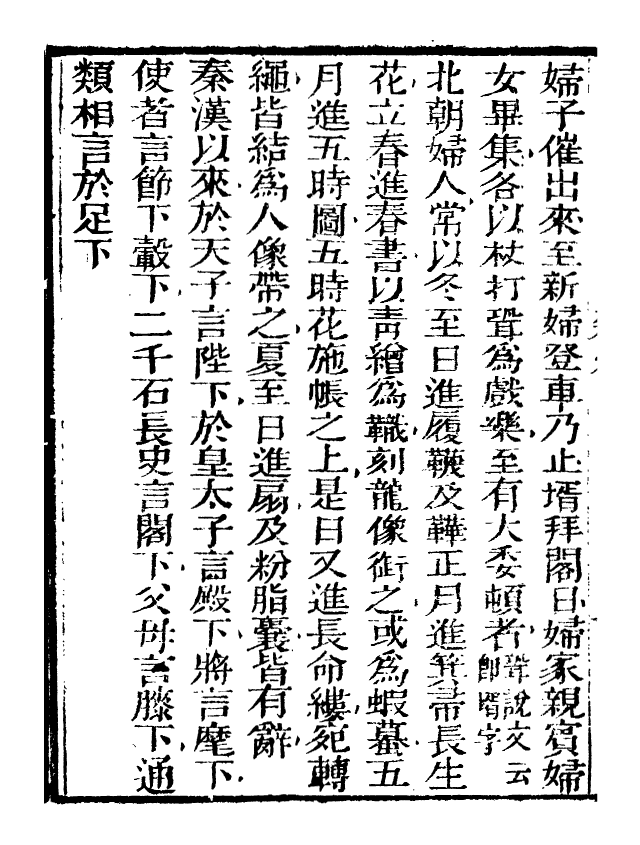 婦子催出來至新婦登車乃止壻拜閤日婦家親賓婦
女畢集各以杖打聟為戲樂至有大委頓者聟說文云卽壻字
北朝婦人常以冬至日進履韈及鞾正月進箕帚長生
花立春進春書以青繒為幟刻龍像銜之或為蝦蟇五
月進五時圖五時花施帳之上是日又進長命縷宛轉
繩皆結為人像帶之夏至日進扇及粉脂囊皆有辭
秦漢以來於天子言陛下於皇太子言殿下將言麾下
使者言節下轂下二千石長史言閣下父母言膝下通
類相言於足下